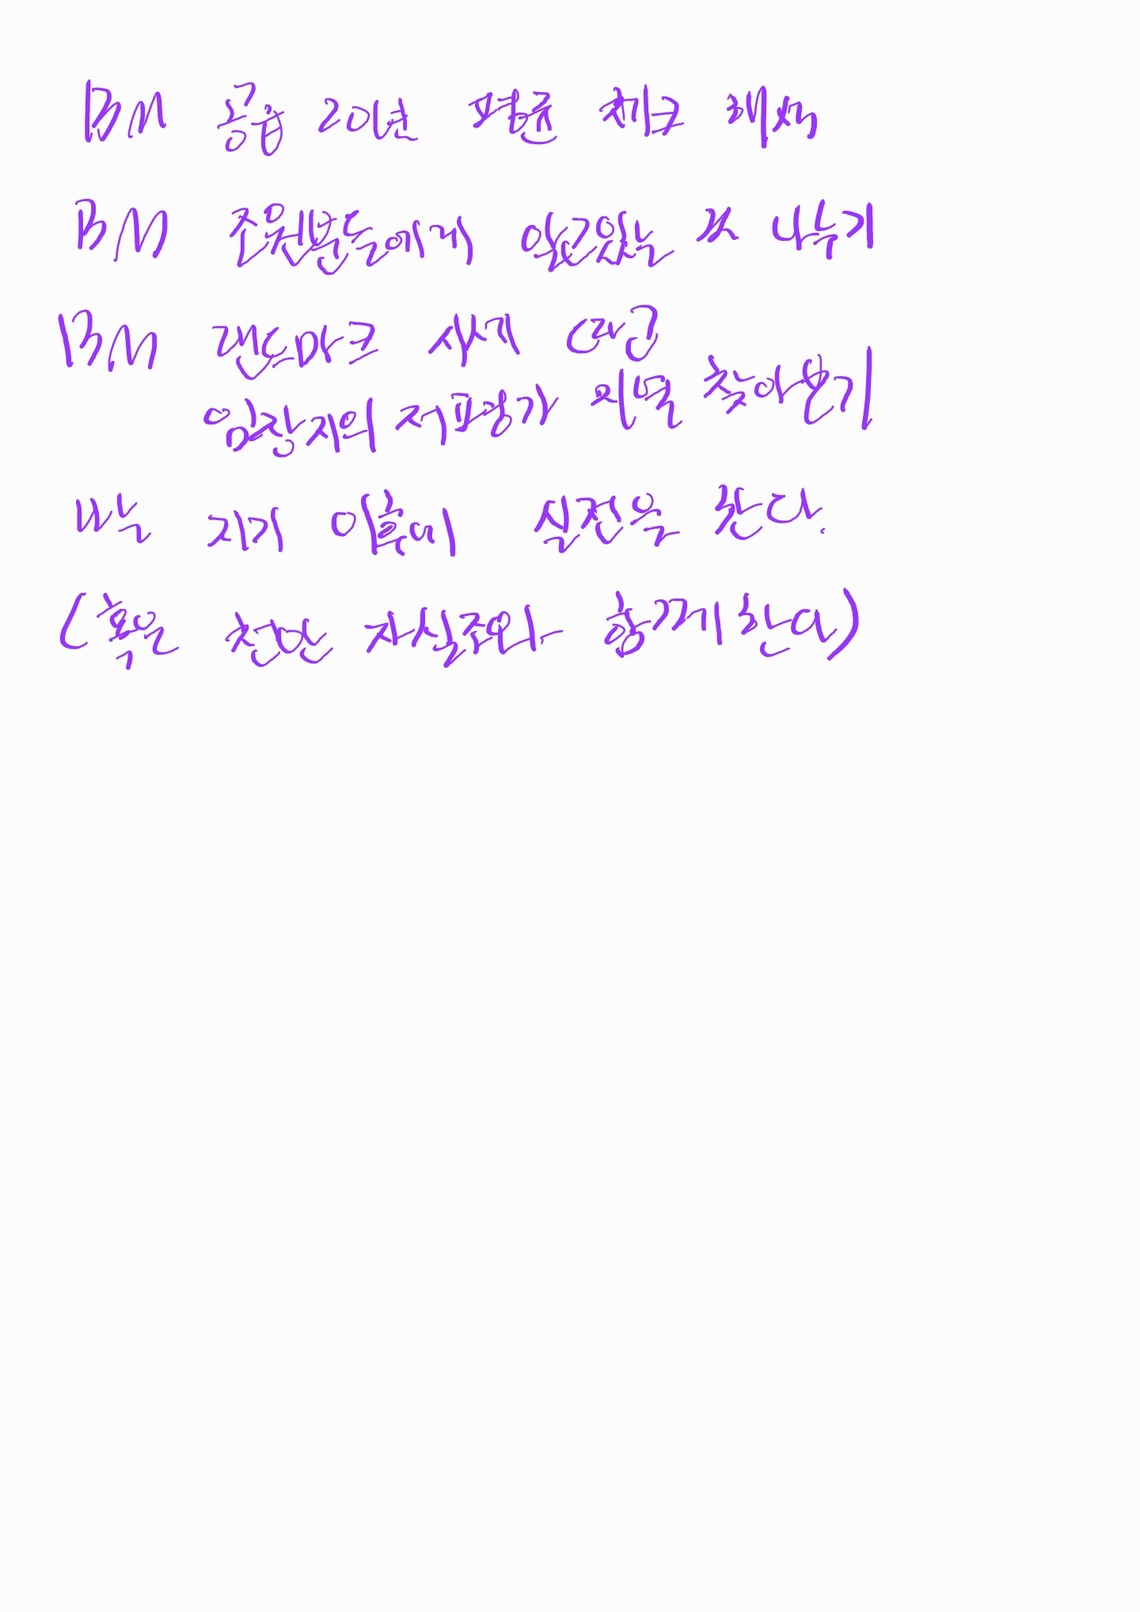 BM 공급 20년 평균 체크 해석
BM 조원분들에게 알고있는 것 나누기
BM 랜드마크 시세 따고
임장지의 저평가 지역 찾아보기
나는 지기 이후에 실전을 한다.
(혹은 천안 자실조와 함께한다)